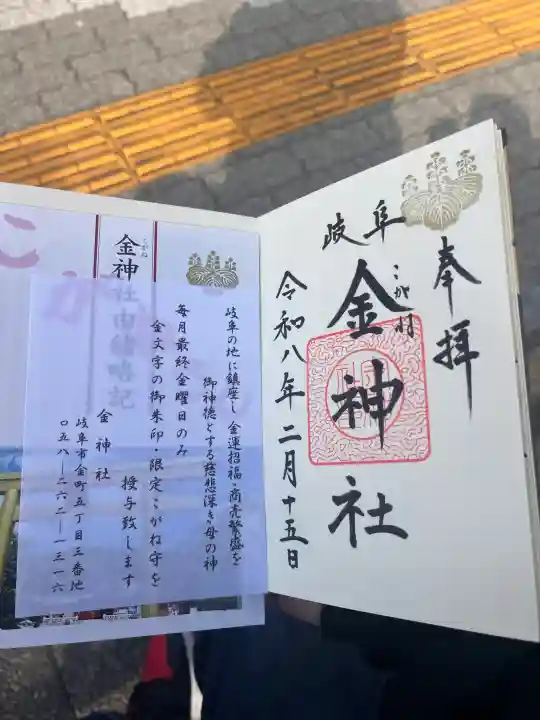 奉拝
岐阜
こがね
金神社
令和八年二月十五日
こがね
金神社由緒略記
岐阜の地に鎮座し金運招福・商売繁盛を
御神徳とする慈悲深き母の神
毎月最終金曜日のみ
金文字の御朱印・限定こがね守を
授与致します
金神社
岐阜市金町五丁目三番地
〇五八―二六二―一三一六
こが